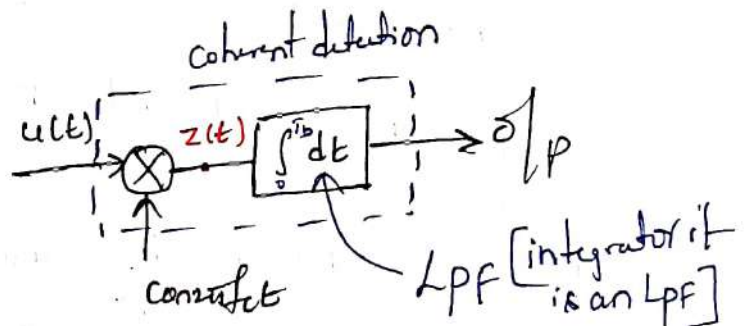 coherent detection
u(t)
z(t)
∫₀^Tb dt
o/p
cos2πfct
LPF [integrator it
is an LPF]